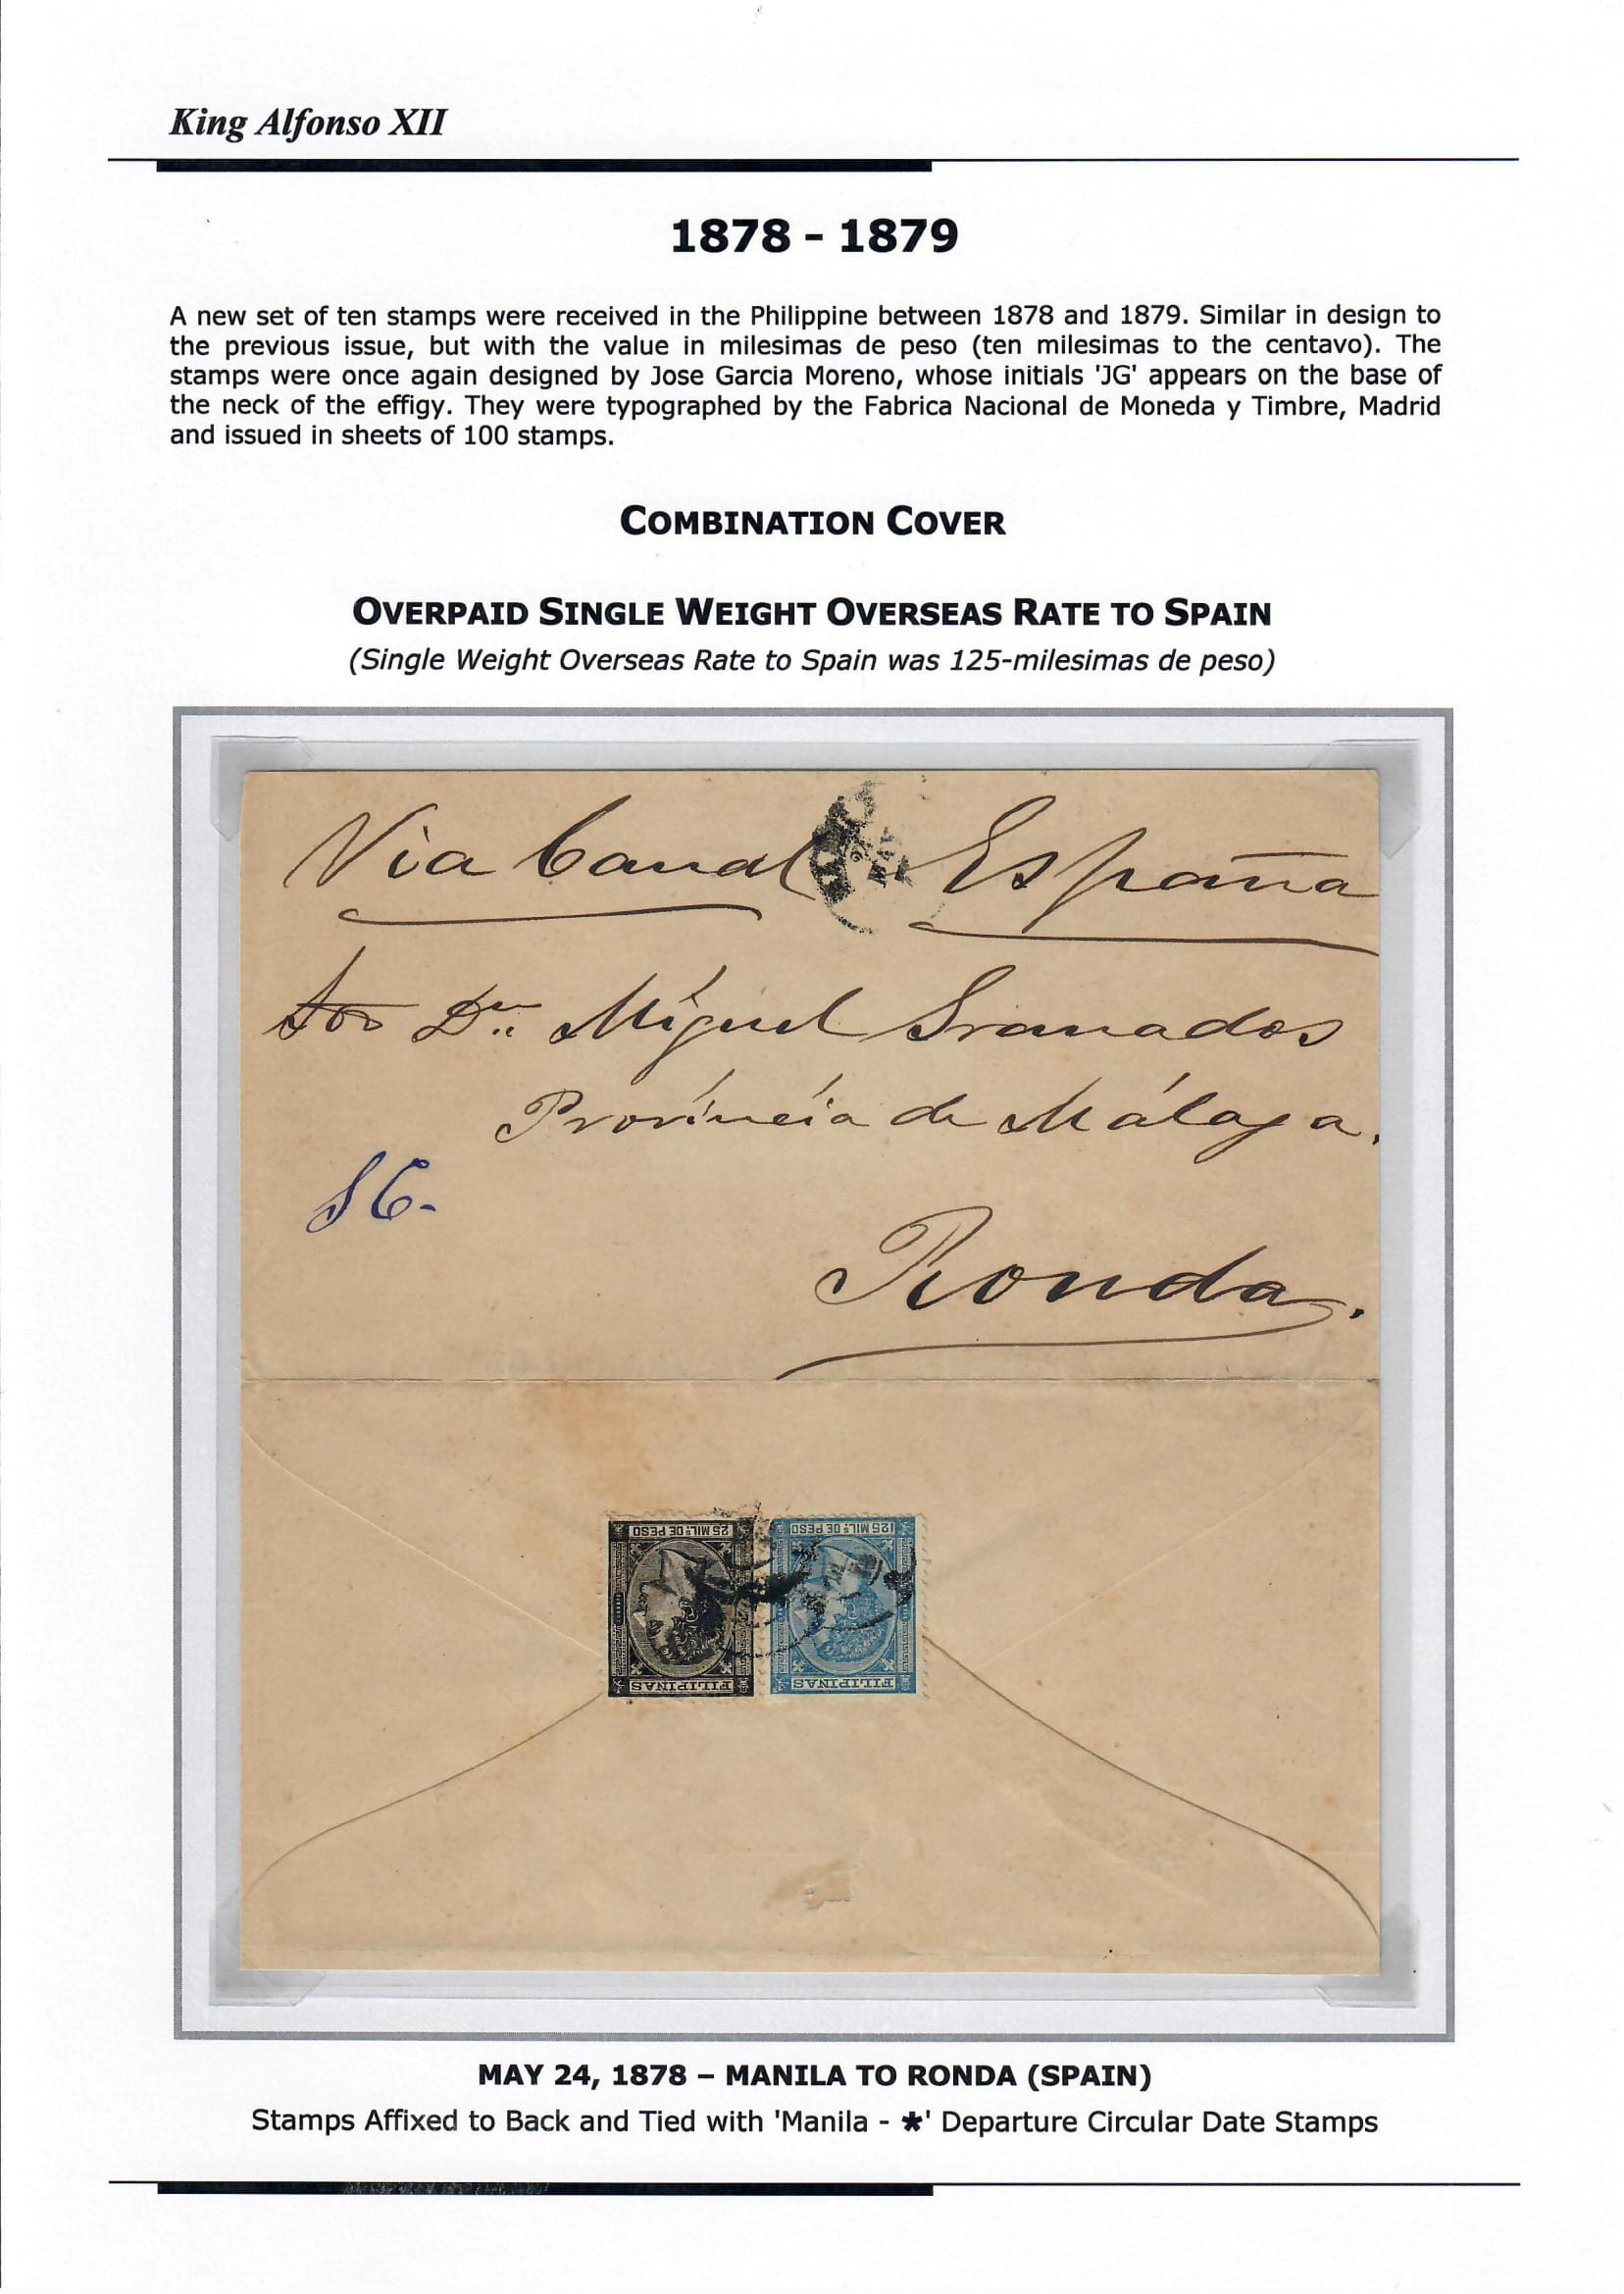 King Alfonso XII
1878 - 1879
A new set of ten stamps were received in the Philippine between 1878 and 1879. Similar in design to
the previous issue, but with the value in milesimas de peso (ten milesimas to the centavo). The
stamps were once again designed by Jose Garcia Moreno, whose initials 'JG' appears on the base of
the neck of the effigy. They were typographed by the Fabrica Nacional de Moneda y Timbre, Madrid
and issued in sheets of 100 stamps.
COMBINATION COVER
OVERPAID SINGLE WEIGHT OVERSEAS RATE TO SPAIN
(Single Weight Overseas Rate to Spain was 125-milesimas de peso)
Via Canal España
Dn. Miguel Granados
Província de Málaga.
Ronda.
25 MILS DE PESO 125 MILS DE PESO
FILIPINAS FILIPINAS
MAY 24, 1878 – MANILA TO RONDA (SPAIN)
Stamps Affixed to Back and Tied with 'Manila - *' Departure Circular Date Stamps